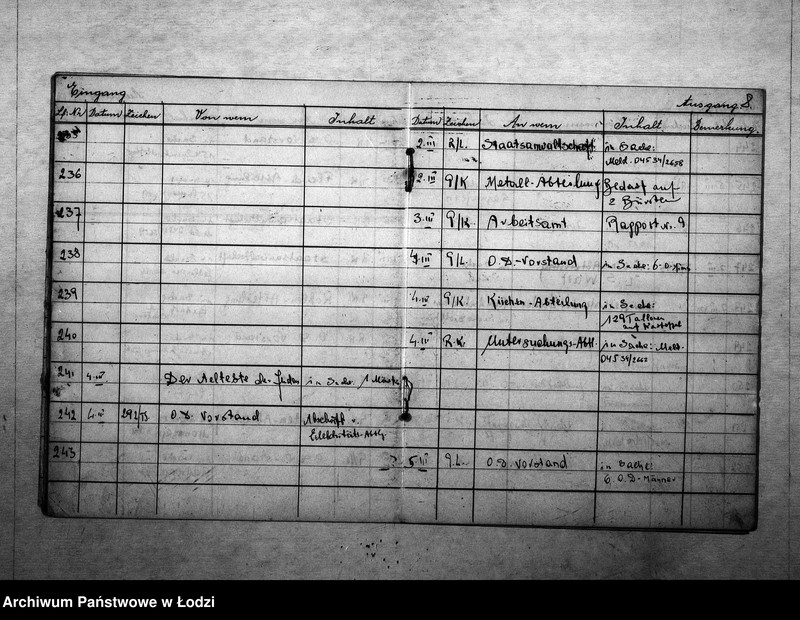 Eingang
Ausgang 8.
Lf. Nr Datum Zeichen Von wem Inhalt Datum Zeichen An wem Inhalt Bemerkung.
235 2.III R/L. Staatsanwaltschaft in Sache:
Meld. 04534/2658
236 2.III G/K Metall-Abteilung Bedarf auf
2 Bürsten
237 3.III G/K Arbeitsamt Rapport nr. 9
238 4.III G/L. O.D.-Vorstand in Sache: 6.
239 4.III G/K Küchen-Abteilung in Sache:
129 Talloner
auf Kartoffel
240 4.III R.K. Untersuchungs-Abtl. in Sache: Meld.
04534/2662
241 4.III. Der Aelteste de. Juden in Sache.
242 4.III 292/13 O.D. Vorstand Abschrift v.
Elektrizitäts-Abtlg.
243 5.III G.L. O.D. Vorstand in Sache:
6. O.D-Männer
Archiwum Państwowe w Łodzi